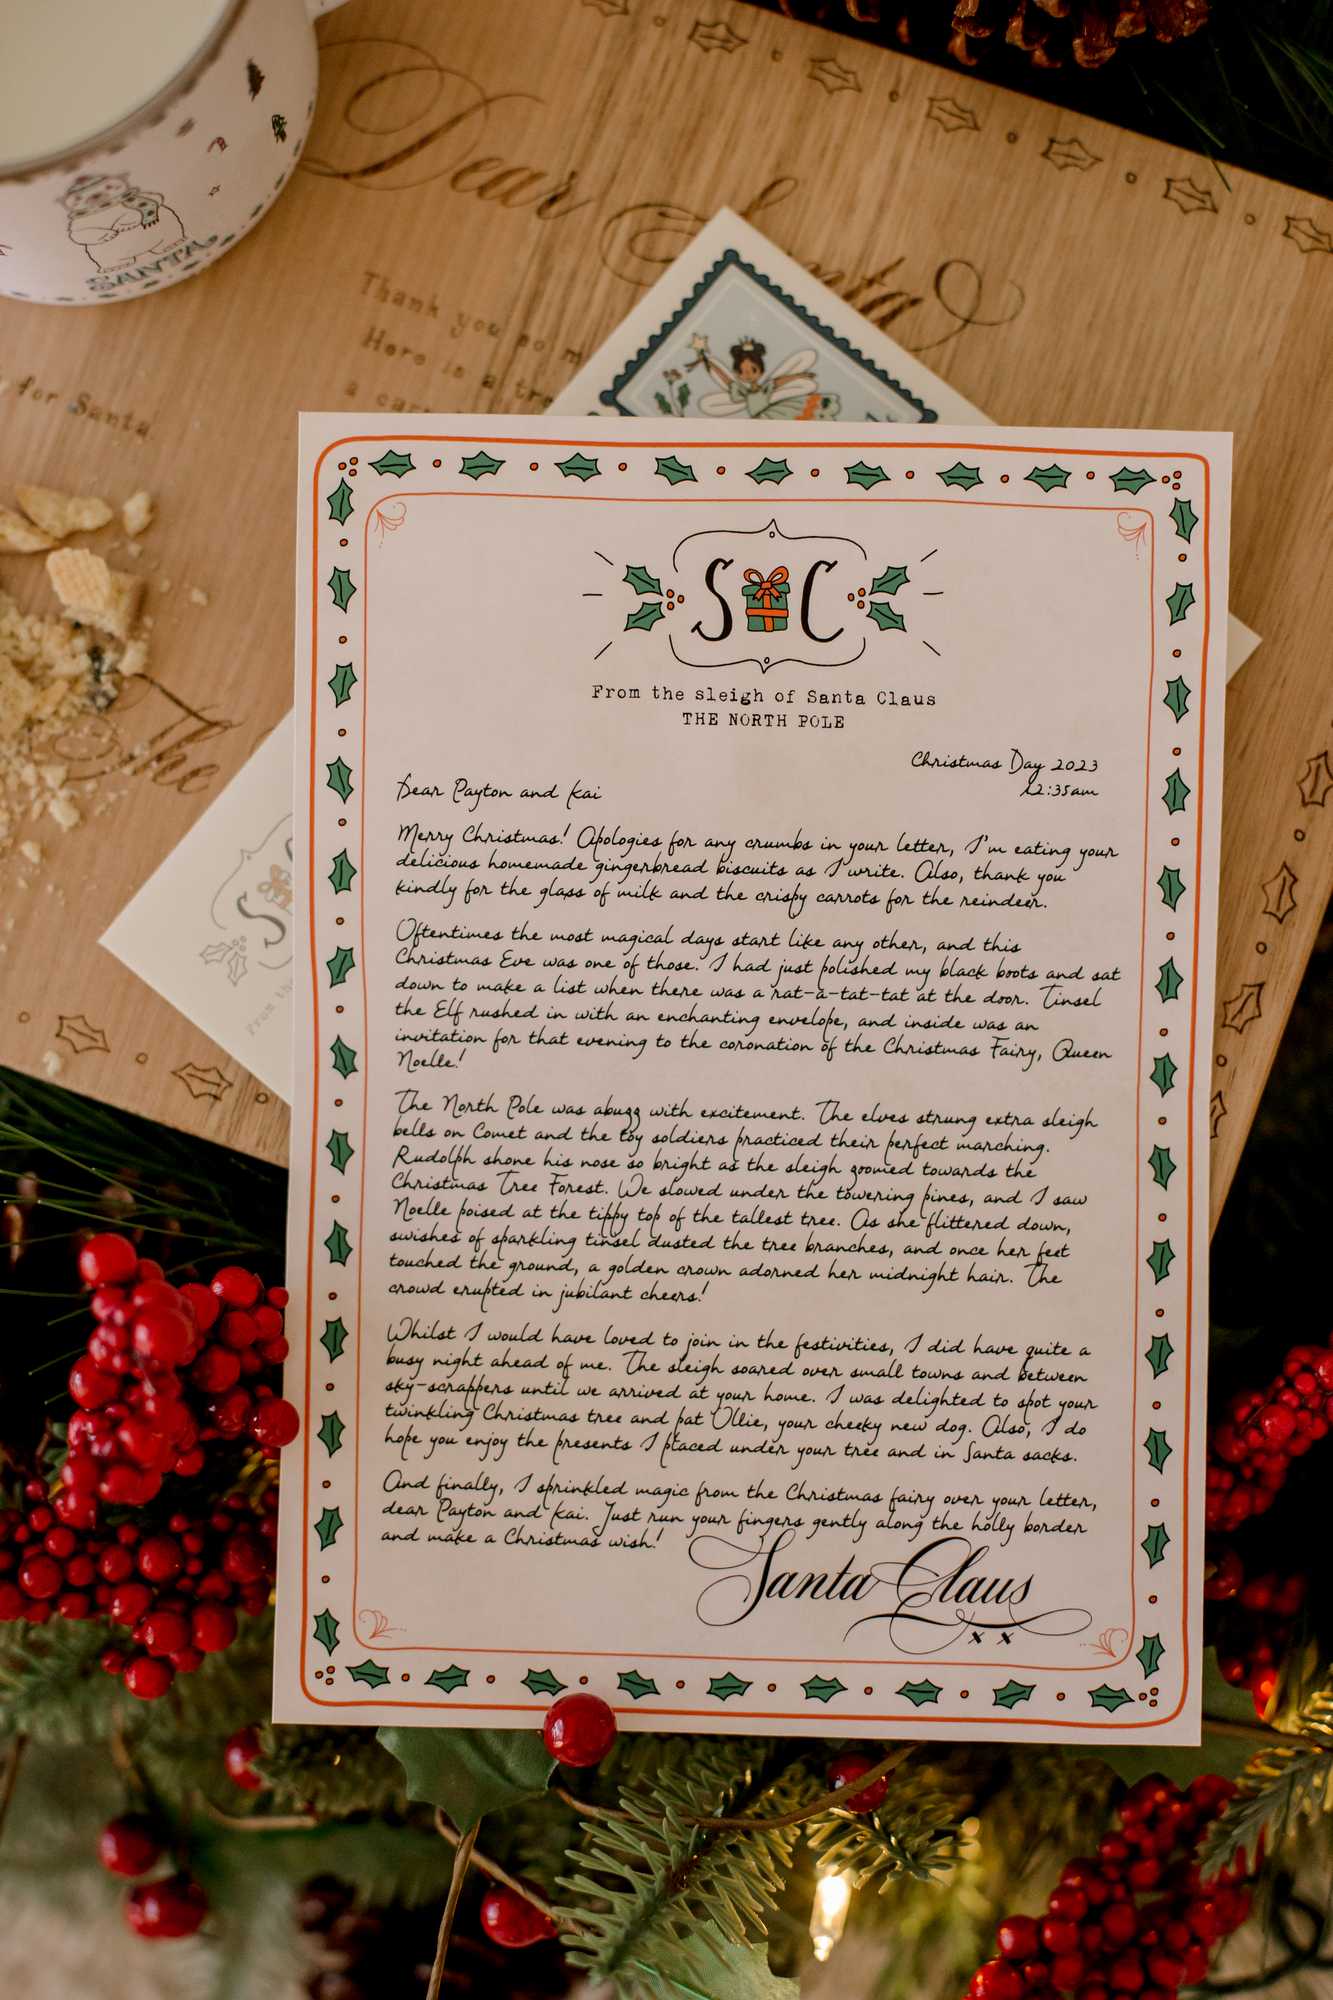 SANTA'S
Dear Santa
Thank you so m
Here is a tre
a car
for Santa
The
S C
From the
S C
From the sleigh of Santa Claus
THE NORTH POLE
Christmas Day 2023
12:35am
Dear Payton and Kai
Merry Christmas! Apologies for any crumbs in your letter, I'm eating your
delicious homemade gingerbread biscuits as I write. Also, thank you
kindly for the glass of milk and the crispy carrots for the reindeer.
Oftentimes the most magical days start like any other, and this
Christmas Eve was one of those. I had just polished my black boots and sat
down to make a list when there was a rat-a-tat-tat at the door. Tinsel
the Elf rushed in with an enchanting envelope, and inside was an
invitation for that evening to the coronation of the Christmas Fairy, Queen
Noelle!
The North Pole was abuzz with excitement. The elves strung extra sleigh
bells on Comet and the toy soldiers practiced their perfect marching.
Rudolph shone his nose so bright as the sleigh zoomed towards the
Christmas Tree Forest. We slowed under the towering pines, and I saw
Noelle poised at the tippy top of the tallest tree. As she flittered down,
swishes of sparkling tinsel dusted the tree branches, and once her feet
touched the ground, a golden crown adorned her midnight hair. The
crowd erupted in jubilant cheers!
Whilst I would have loved to join in the festivities, I did have quite a
busy night ahead of me. The sleigh soared over small towns and between
sky-scrappers until we arrived at your home. I was delighted to spot your
twinkling Christmas tree and pat Ollie, your cheeky new dog. Also, I do
hope you enjoy the presents I placed under your tree and in Santa sacks.
And finally, I sprinkled magic from the Christmas fairy over your letter,
dear Payton and Kai. Just run your fingers gently along the holly border
and make a Christmas wish!
Santa Claus
x x